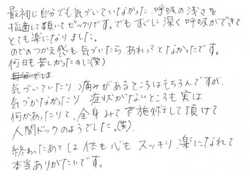 最初に自分でも気づいていなかった呼吸の浅さを
指摘して頂いてビックリです。でもすぐに深く呼吸ができて
とても楽になりました。
のどのつかえ感も気づいたらあれっ?となかったです。
何日も苦しかったのに(笑)
気づいていたり痛みがあるところはもちろんですが、
気づかなかったり症状がないところも実は
何かあったりで、全身みて施術して頂けて
人間ドックのようでした(笑)
終わったあとは体も心もスッキリ楽になれて
本当ありがたいです。